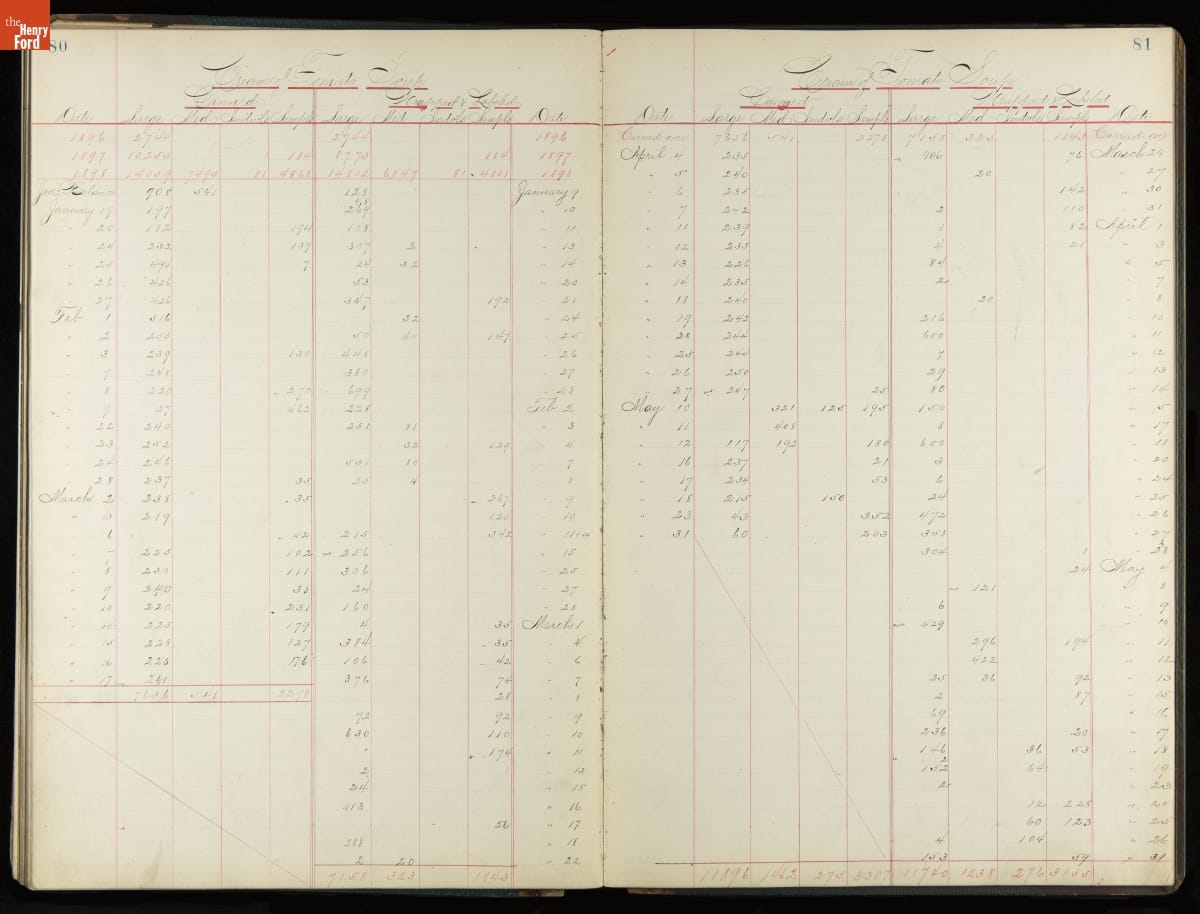 the
Henry
Ford
80
Cream of Tomato Soup
Canned Wrapped & Labeled
Date Large Med Indvls Sample Large Med Indvls Sample Date
1896 2744 2944 1896
1897 10253 184 8773 184 1897
1898 14059 7495 81 4868 14802 6847 81 4801 1898
Balance 908 541 128 January 9
January 19 197 269 " 10
" 20 182 194 108 " 11
" 24 232 137 307 2 " 13
" 25 494 7 24 32 " 14
" 26 426 53 " 20
" 27 426 347 192 " 21
Feb 1 516 32 " 24
" 2 255 50 40 147 " 25
" 3 239 130 448 " 26
" 7 248 380 " 27
" 8 220 270 699 " 28
" 9 27 462 228 Feb 2
" 22 240 251 81 " 3
" 23 252 32 129 " 4
" 24 246 531 80 " 7
" 28 237 35 25 4 " 8
March 2 238 35 267 " 9
" 3 219 120 " 10
" 6 42 215 342 " 11
" 7 225 102 256 " 15
" 8 230 111 306 " 25
" 9 240 38 24 " 27
" 10 220 231 160 " 28
" 14 225 179 4 35 March 1
" 15 228 127 384 35 " 4
" 16 226 76 106 42 " 6
" 17 241 376 74 " 7
7636 541 2278 28 " 8
72 92 " 9
630 110 " 10
" 174 " 11
2 " 13
24 " 15
413 " 16
56 " 17
288 " 18
2 20 " 22
7158 323 1843
81
Cream of Tomato Soup
Canned Wrapped & Labeled
Date Large Med Indvls Sample Large Med Indvls Sample Date
Carried over 7636 541 2278 7158 323 1843 Carried over
April 4 235 406 76 March 24
" 5 240 20 " 27
" 6 235 142 " 30
" 7 242 2 110 " 31
" 11 239 1 82 April 1
" 12 235 4 21 " 3
" 13 226 84 " 5
" 14 235 2 " 7
" 18 240 20 " 8
" 19 242 216 " 10
" 20 244 600 " 11
" 25 244 7 " 12
" 26 250 29 " 13
" 27 247 25 80 " 14
May 10 321 125 195 150 " 15
" 11 408 8 " 17
" 12 117 192 180 600 " 18
" 16 237 21 3 " 20
" 17 234 53 6 " 24
" 18 215 150 24 " 25
" 23 43 352 472 " 26
" 31 60 203 358 " 27
304 1 " 28
24 May 4
121 " 8
6 " 9
429 " 10
296 194 " 11
422 " 12
35 36 92 " 13
2 87 " 15
69 " 16
236 20 " 17
146 36 53 " 18
152 64 " 19
2 " 23
12 228 " 24
60 123 " 25
4 104 " 26
153 59 " 31
11896 1462 275 3307 11740 1238 276 3155